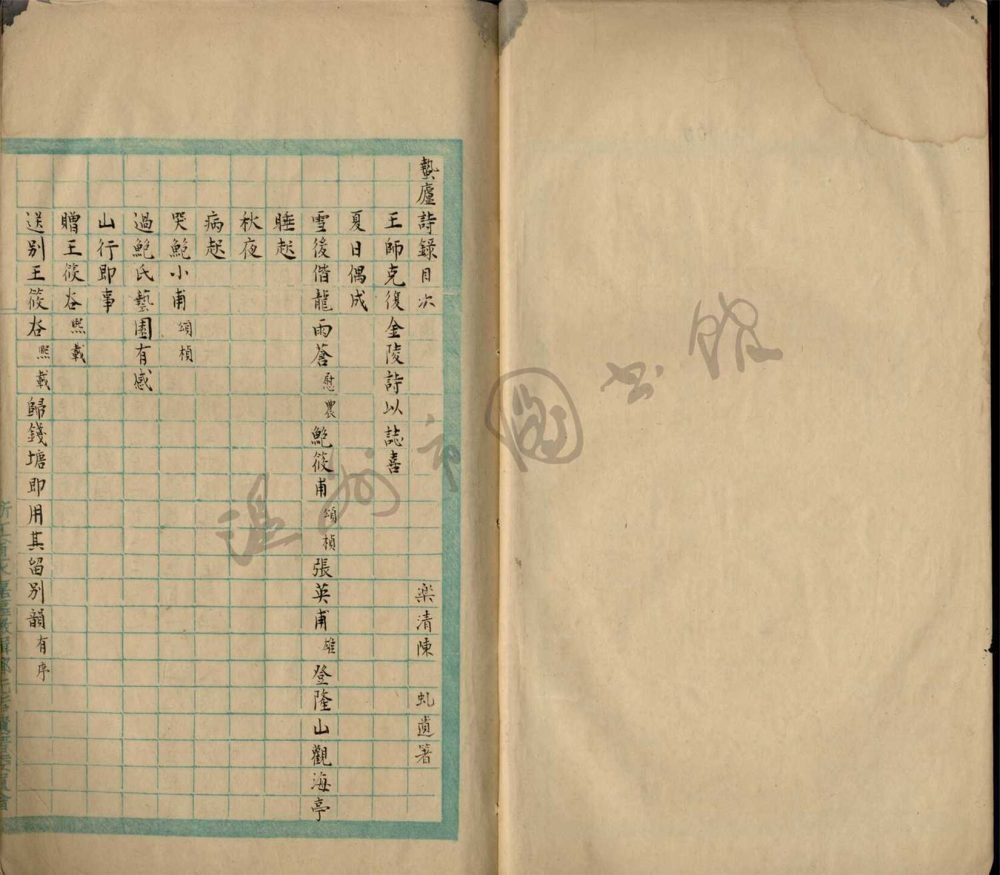 蟄廬詩錄目次
樂清陳 虬遺著
王師克復金陵詩以誌喜
夏日偶成
雪後偕龍雨蒼慰農鮑筱甫頌楨張英甫雄登隆山觀海亭
睡起
秋夜
病起
哭鮑小甫頌楨
過鮑氏藝園有感
山行即事
贈王筱谷熙載
送別王筱谷熙載歸錢塘即用其留別韻有序
溫州市圖書館